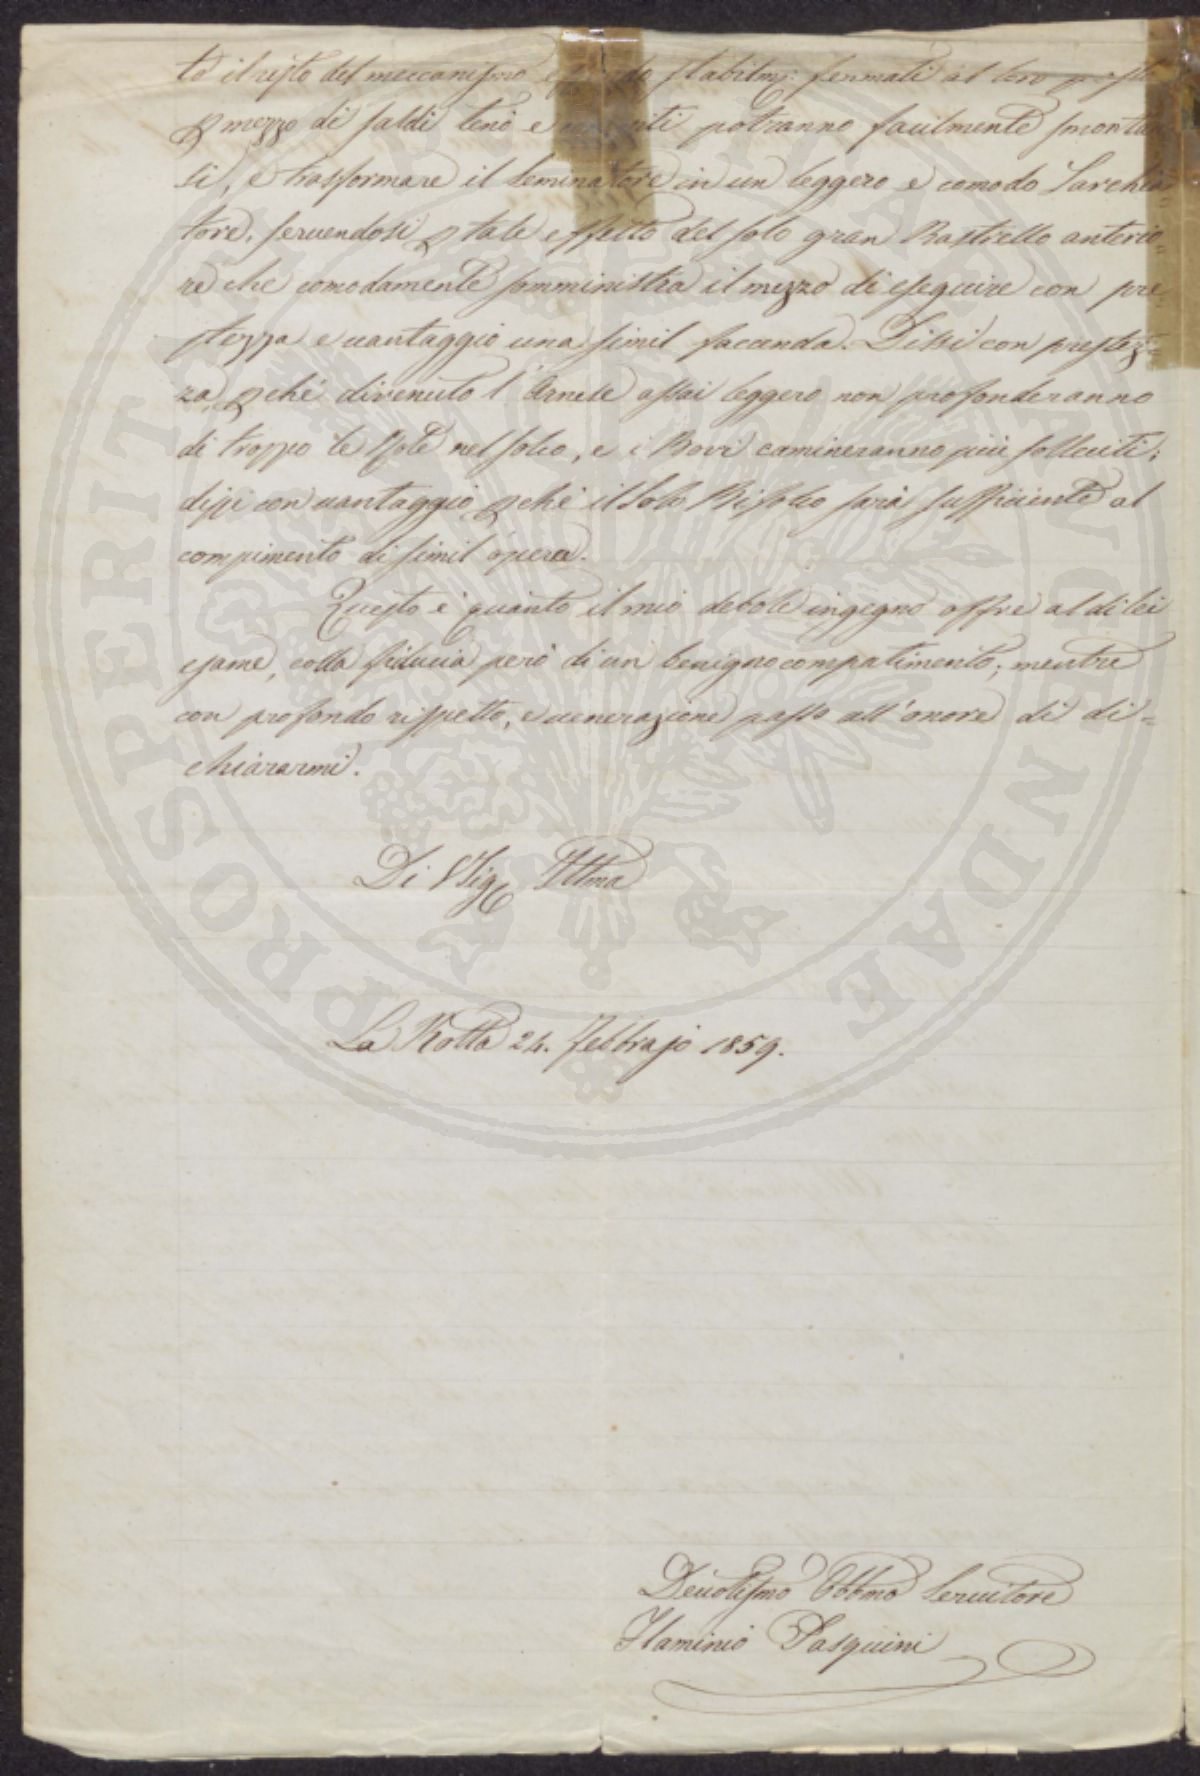 to il resto del meccanismo essendo stabilmᵉ: fermati al loro posto
p mezzo di saldi tenò e potranno facilmente smontar
si, e trasformare il Seminatore in un leggero e comodo Sarchia
tore, servendosi p tale effetto del solo gran Rastrello anterio=
re che comodamente somministra il mezzo di eseguire con pre
stezza e vantaggio una simil faccenda. Dissi con prestez=
za, pchè divenuto l'Arnese assai leggero non profonderanno
di troppo le Rote nel solco, e i Bovi camineranno più solleciti;
dissi con vantaggio, pchè il solo Bifolco sarà sufficiente al
compimento di simil opera.
Questo è quanto il mio debole ingegno offre al di lei
esame, colla fiducia però di un benigno compatimento; mentre
con profondo rispetto, e venerazione passo all'onore di di=
chiararmi.
Di VSig Illma
La Rotta 24. Febbrajo 1859.
Devotissmo Obbmo Servitore
Flaminio Pasquini
PROSPERITATI PUBLICAE AUGENDAE